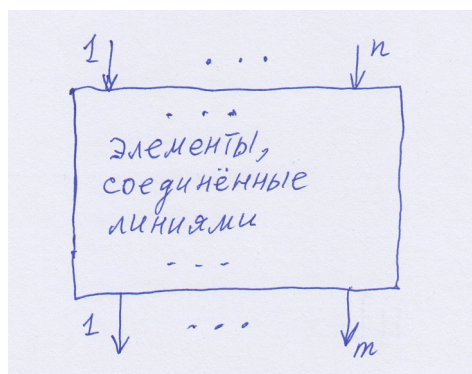 1 ... n
...
элементы,
соединённые
линиями
---
1 ... m